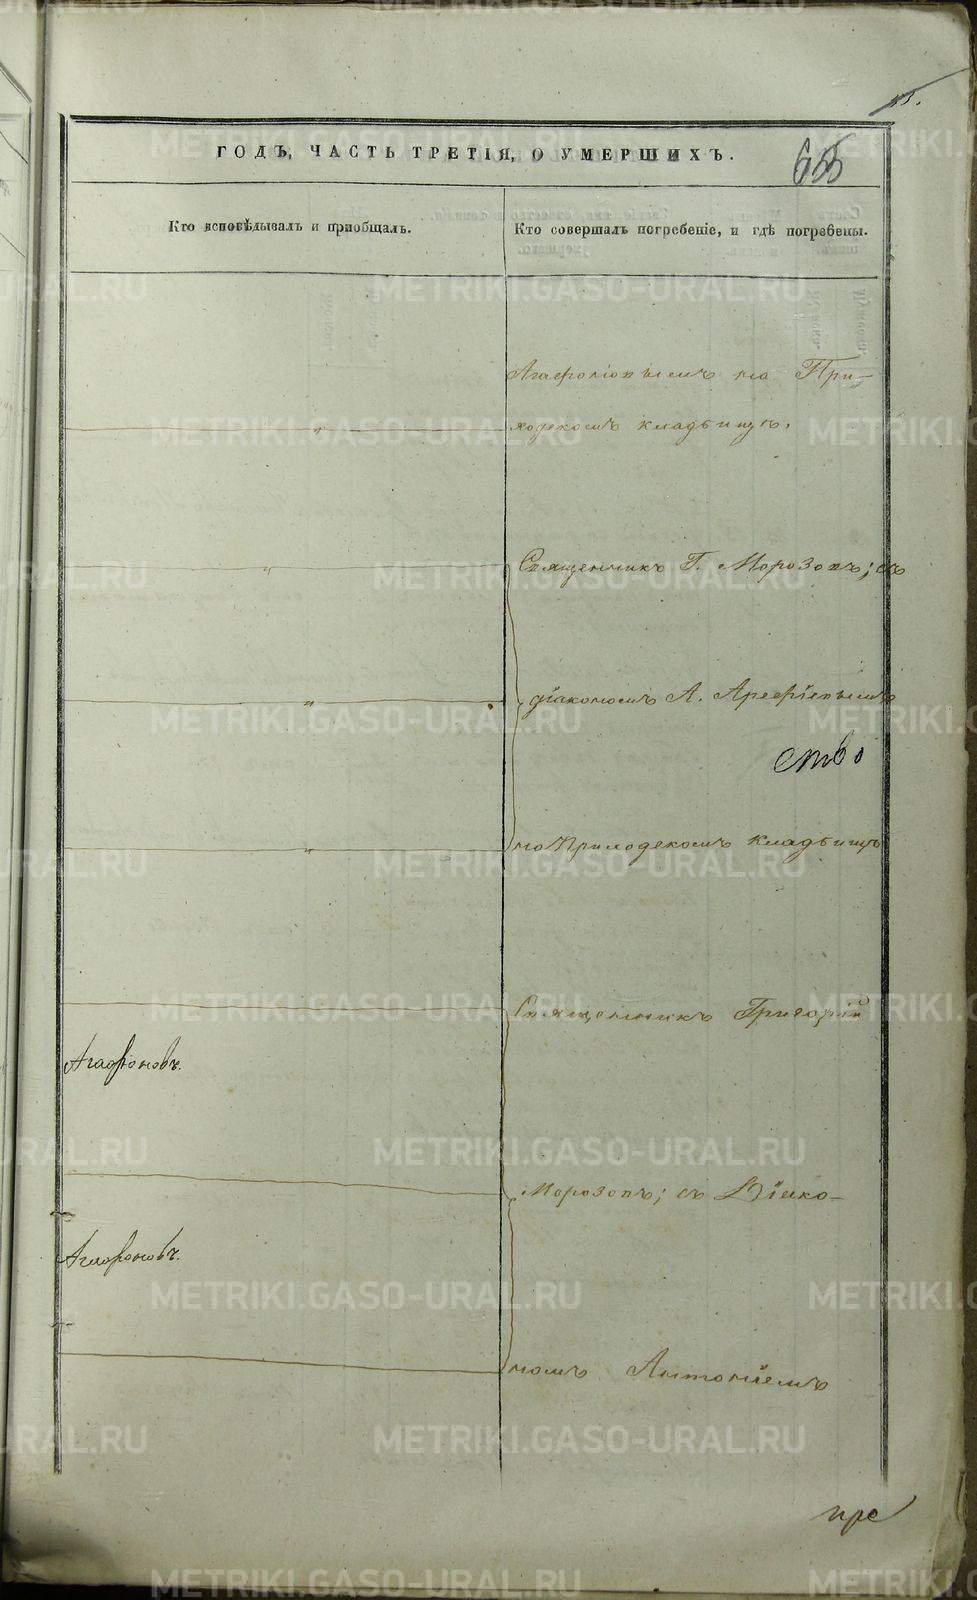 ГОДЪ, ЧАСТЬ ТРЕТІЯ, О УМЕРШИХЪ.
655
Кто исповѣдывалъ и пріобщалъ.
Кто совершалъ погребеніе, и гдѣ погребены.
на При-
ходскомъ кладбищѣ.
Священникъ Г. Морозовъ; съ
діакономъ А. Арефіевымъ
ство
на Приходскомъ кладбищѣ
Священникъ Григорій
Агафоновъ.
Морозовъ; съ Діако-
Агафоновъ.
номъ Антоніемъ
пре
METRIKI.GASO-URAL.RU